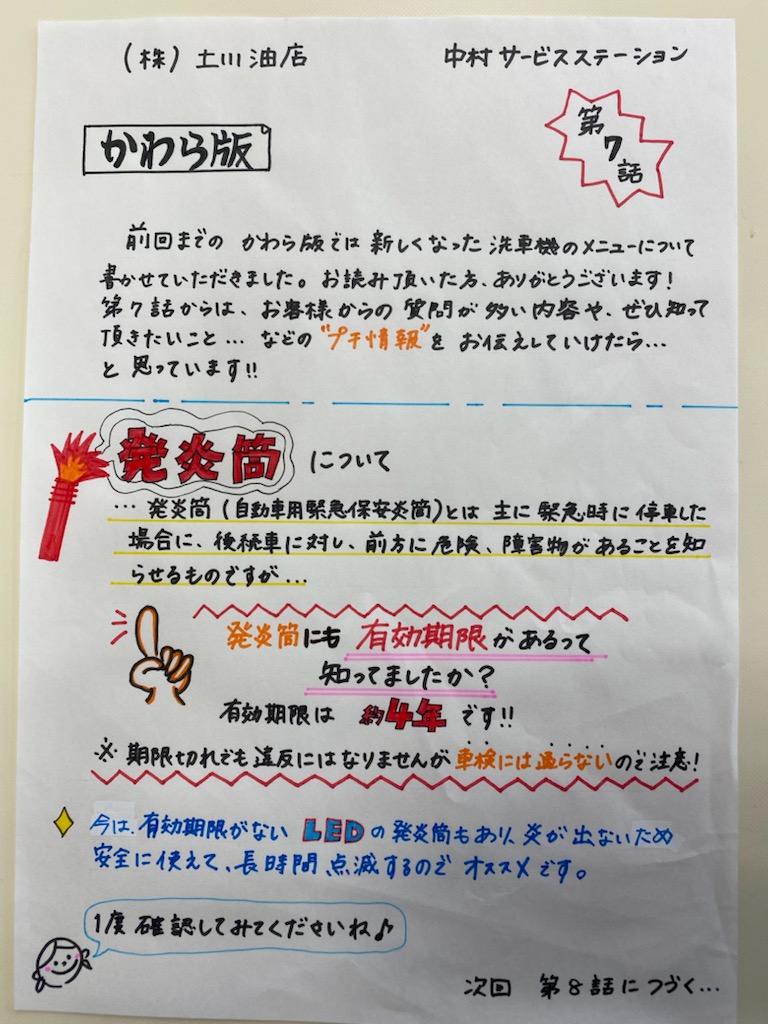 (株)土川油店 中村サービスステーション
かわら版
第7話
前回までの かわら版では 新しくなった 洗車機のメニューについて
書かせていただきました。お読み頂いた方、ありがとうございます!
第7話からは、お客様からの 質問が 多い内容や、ぜひ知って
頂きたいこと… などの "プチ情報" を お伝えしていけたら…
と 思っています!!
発炎筒 について
… 発炎筒(自動車用緊急保安炎筒)とは 主に 緊急時に 停車した
場合に、後続車に対し、前方に危険、障害物があることを知
らせるものですが…
発炎筒にも 有効期限があるって
知ってましたか?
有効期限は 約4年です!!
※ 期限切れでも違反にはなりませんが車検には通らないので注意!
今は、有効期限がない LEDの発炎筒もあり、炎が出ないため
安全に使えて、長時間 点滅するので オススメです。
1度確認してみてくださいね♪
次回 第8話につづく…